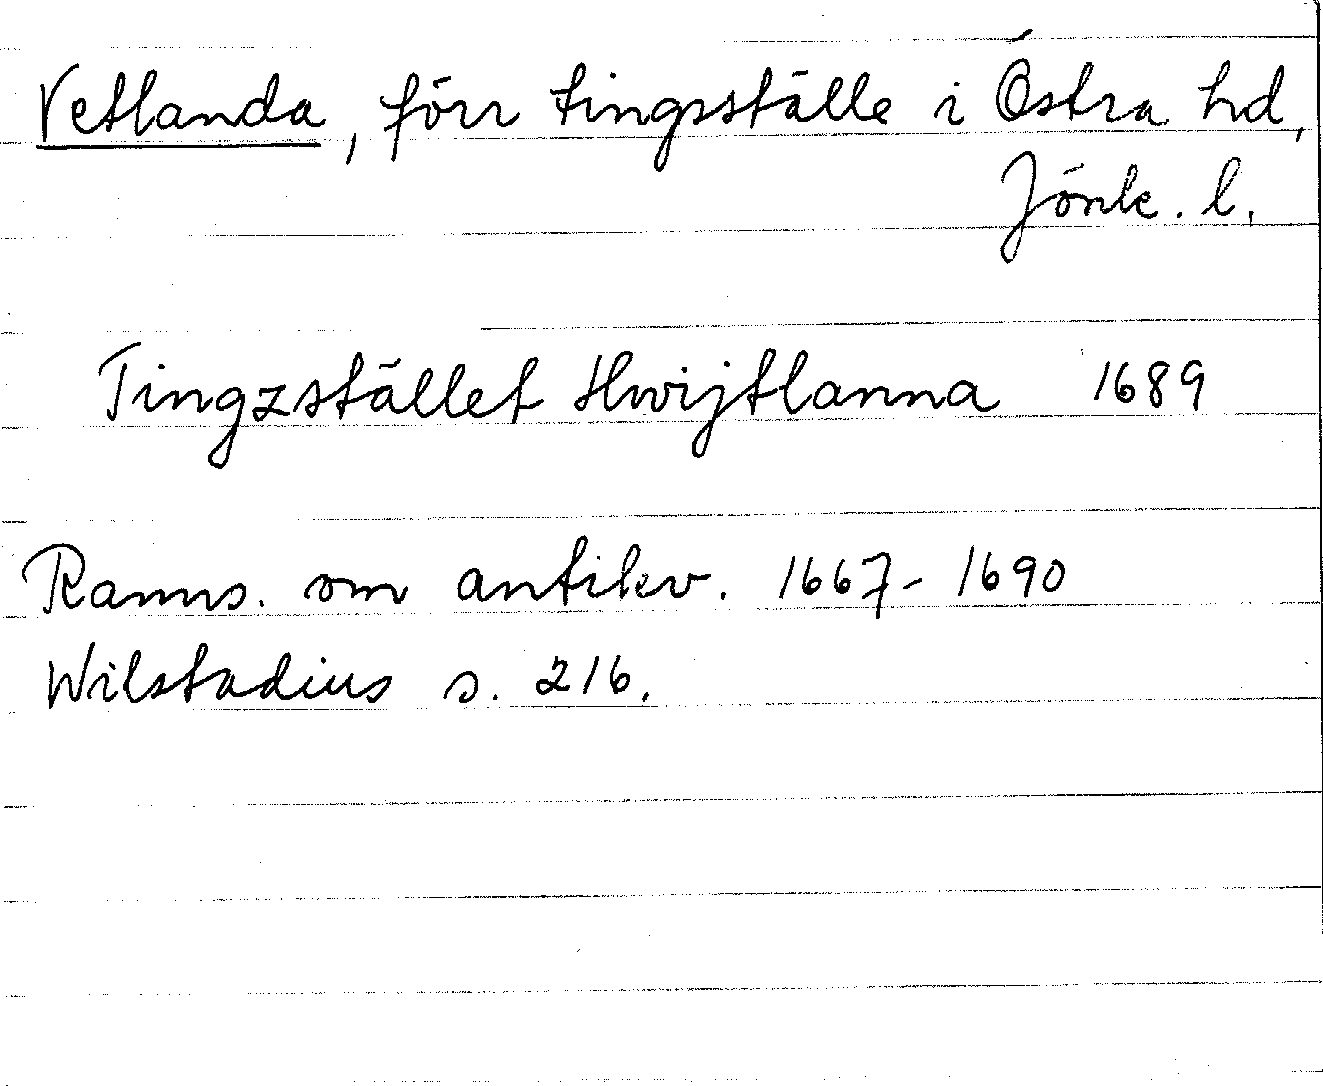 Vetlanda, förr tingsställe i Östra hd,
Jönk. l.
Tingzstället Hwijtlanna 1689
Ranns. om antikv. 1667-1690
Wilstadius s. 216.